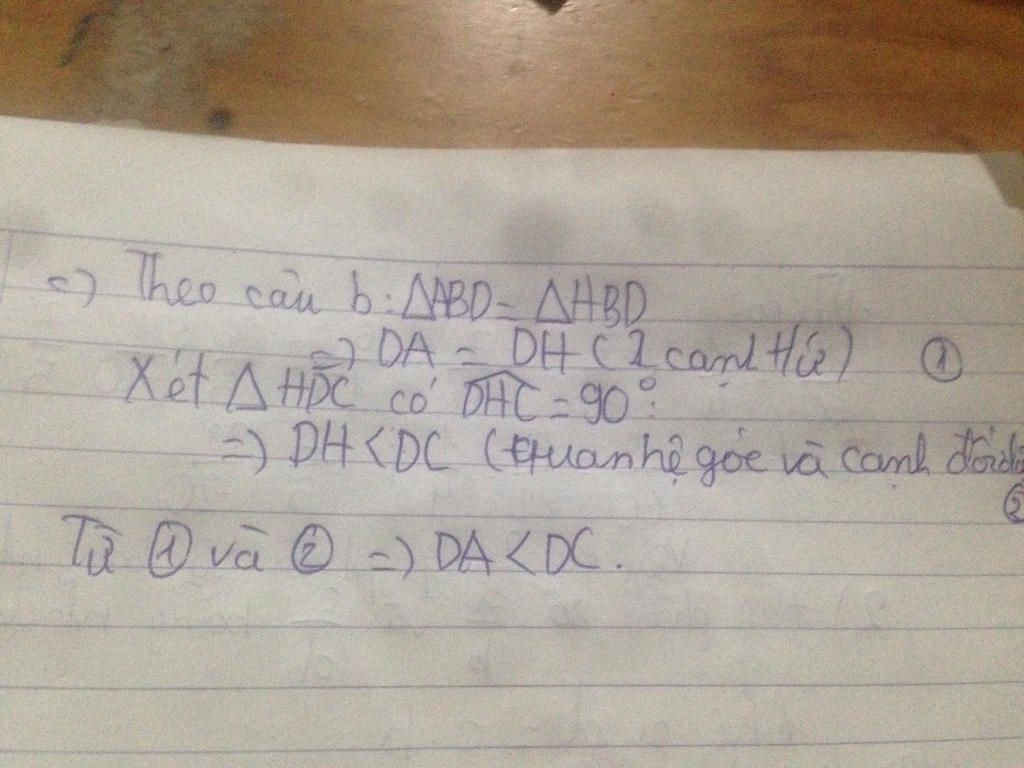 =) Theo câu b: ΔABD = ΔHBD
=) DA = DH (2 cạnh t/ứ) ①
Xét ΔHDC có \widehat{DHC} = 90°:
=) DH < DC (quan hệ góc và cạnh đối diện
②
Từ ① và ② =) DA < DC.